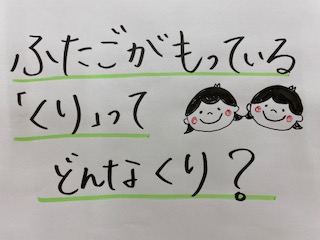 ふたごがもっている
「くり」って
どんなくり?